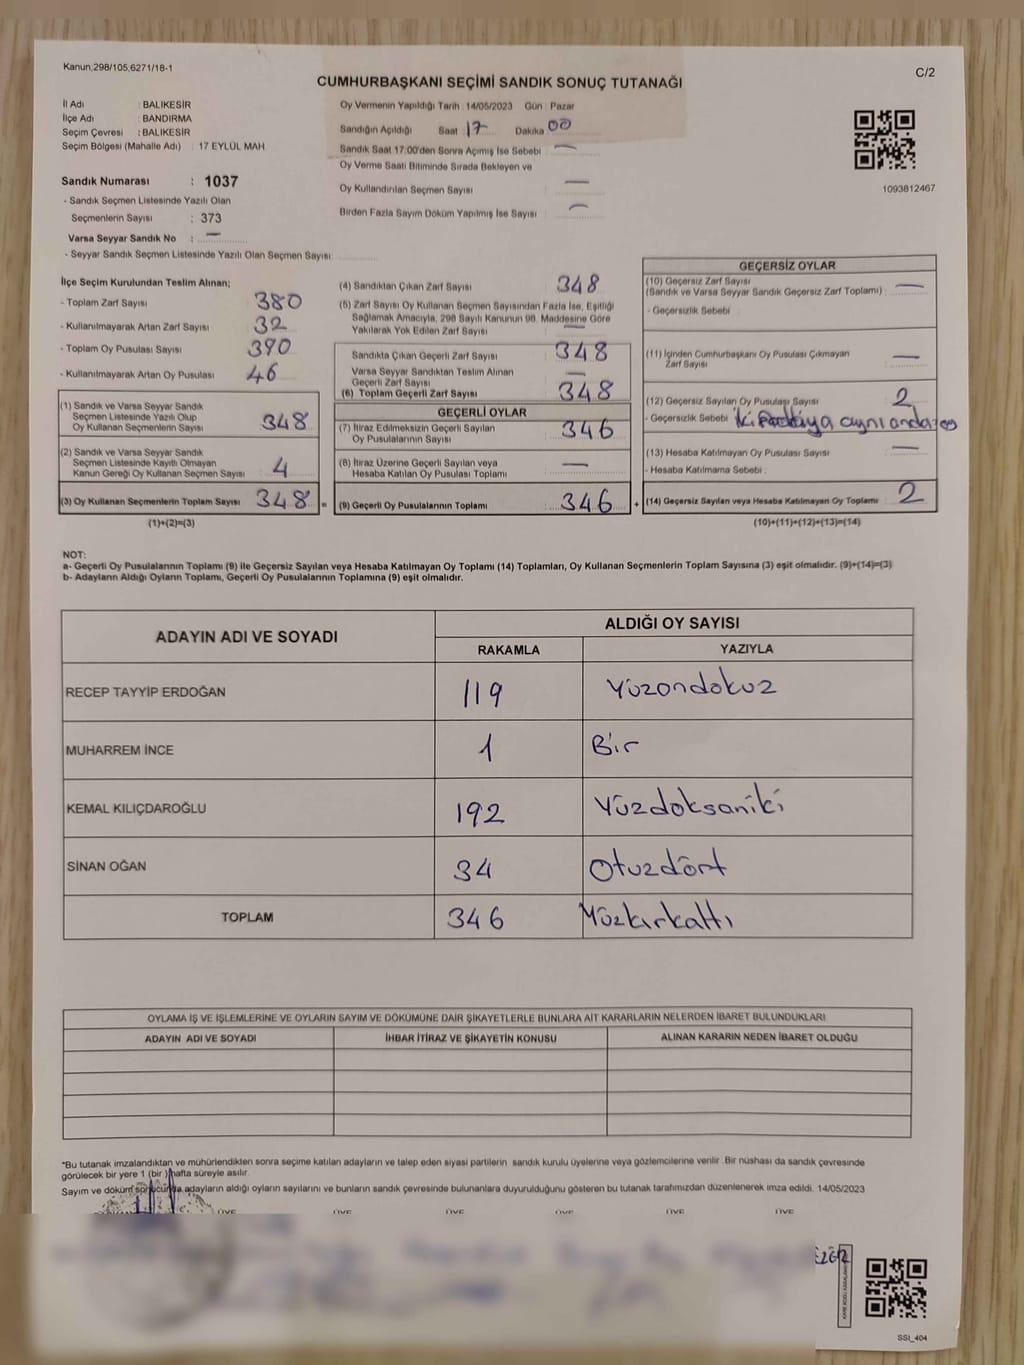 Kanun;298/105,6271/18-1
C/2
CUMHURBAŞKANI SEÇİMİ SANDIK SONUÇ TUTANAĞI
İl Adı : BALIKESİR
İlçe Adı : BANDIRMA
Seçim Çevresi : BALIKESİR
Seçim Bölgesi (Mahalle Adı) : 17 EYLÜL MAH.
Oy Vermenin Yapıldığı Tarih : 14/05/2023 Gün : Pazar
Sandığın Açıldığı Saat 17 Dakika 00
Sandık Saat 17:00'den Sonra Açımış İse Sebebi : —
Oy Verme Saati Bitiminde Sırada Bekleyen ve
Oy Kullandırılan Seçmen Sayısı —
Birden Fazla Sayım Döküm Yapılmış İse Sayısı : —
1093812467
Sandık Numarası : 1037
- Sandık Seçmen Listesinde Yazılı Olan
Seçmenlerin Sayısı : 373
Varsa Seyyar Sandık No : —
- Seyyar Sandık Seçmen Listesinde Yazılı Olan Seçmen Sayısı:
İlçe Seçim Kurulundan Teslim Alınan;
- Toplam Zarf Sayısı 380
- Kullanılmayarak Artan Zarf Sayısı 32
- Toplam Oy Pusulası Sayısı 390
- Kullanılmayarak Artan Oy Pusulası 46
(1) Sandık ve Varsa Seyyar Sandık
Seçmen Listesinde Yazılı Olup
Oy Kullanan Seçmenlerin Sayısı 348
(2) Sandık ve Varsa Seyyar Sandık
Seçmen Listesinde Kayıtlı Olmayan
Kanun Gereği Oy Kullanan Seçmen Sayısı 4
(3) Oy Kullanan Seçmenlerin Toplam Sayısı 348 =
(1)+(2)=(3)
(4) Sandıktan Çıkan Zarf Sayısı 348
(5) Zarf Sayısı Oy Kullanan Seçmen Sayısından Fazla İse, Eşitliği
Sağlamak Amacıyla, 298 Sayılı Kanunun 98. Maddesine Göre
Yakılarak Yok Edilen Zarf Sayısı —
Sandıkta Çıkan Geçerli Zarf Sayısı 348
Varsa Seyyar Sandıktan Teslim Alınan
Geçerli Zarf Sayısı —
(6) Toplam Geçerli Zarf Sayısı 348
GEÇERLİ OYLAR
(7) İtiraz Edilmeksizin Geçerli Sayılan
Oy Pusulalarının Sayısı 346
(8) İtiraz Üzerine Geçerli Sayılan veya
Hesaba Katılan Oy Pusulası Toplamı —
(9) Geçerli Oy Pusulalarının Toplamı 346 +
GEÇERSİZ OYLAR
(10) Geçersiz Zarf Sayısı
(Sandık ve Varsa Seyyar Sandık Geçersiz Zarf Toplamı) : —
- Geçersizlik Sebebi :
(11) İçinden Cumhurbaşkanı Oy Pusulası Çıkmayan
Zarf Sayısı —
(12) Geçersiz Sayılan Oy Pusulası Sayısı 2
- Geçersizlik Sebebi : iki aynı anda
(13) Hesaba Katılmayan Oy Pusulası Sayısı —
- Hesaba Katılmama Sebebi :
(14) Geçersiz Sayılan veya Hesaba Katılmayan Oy Toplamı 2
(10)+(11)+(12)+(13)=(14)
NOT:
a- Geçerli Oy Pusulalarının Toplamı (9) ile Geçersiz Sayılan veya Hesaba Katılmayan Oy Toplamı (14) Toplamları, Oy Kullanan Seçmenlerin Toplam Sayısına (3) eşit olmalıdır. (9)+(14)=(3)
b- Adayların Aldığı Oyların Toplamı, Geçerli Oy Pusulalarının Toplamına (9) eşit olmalıdır.
ADAYIN ADI VE SOYADI
ALDIĞI OY SAYISI
RAKAMLA YAZIYLA
RECEP TAYYİP ERDOĞAN 119 Yüzondokuz
MUHARREM İNCE 1 Bir
KEMAL KILIÇDAROĞLU 192 Yüzdoksaniki
SİNAN OĞAN 34 Otuzdört
TOPLAM 346 Yüzkırkaltı
OYLAMA İŞ VE İŞLEMLERİNE VE OYLARIN SAYIM VE DÖKÜMÜNE DAİR ŞİKAYETLERLE BUNLARA AİT KARARLARIN NELERDEN İBARET BULUNDUKLARI
ADAYIN ADI VE SOYADI İHBAR İTİRAZ VE ŞİKAYETİN KONUSU ALINAN KARARIN NEDEN İBARET OLDUĞU
*Bu tutanak imzalandıktan ve mühürlendikten sonra seçime katılan adayların ve talep eden siyasi partilerin sandık kurulu üyelerine veya gözlemcilerine verilir. Bir nüshası da sandık çevresinde
görülecek bir yere 1 (bir) hafta süreyle asılır.
Sayım ve döküm sonucunda adayların aldığı oyların sayılarını ve bunların sandık çevresinde bulunanlara duyurulduğunu gösteren bu tutanak tarafımızdan düzenlenerek imza edildi. 14/05/2023
ÜYE ÜYE ÜYE ÜYE ÜYE ÜYE
SSI_404